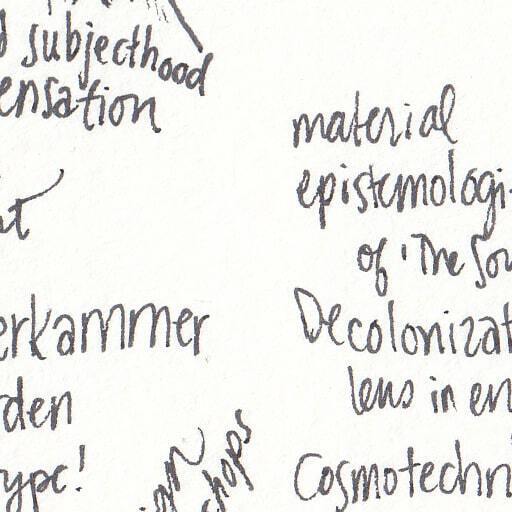 d subjecthood
ensation
erkammer
rden
ype!
chops
material
epistemologi
of 'The Sou
Decolonizat
lens in en
Cosmotechn